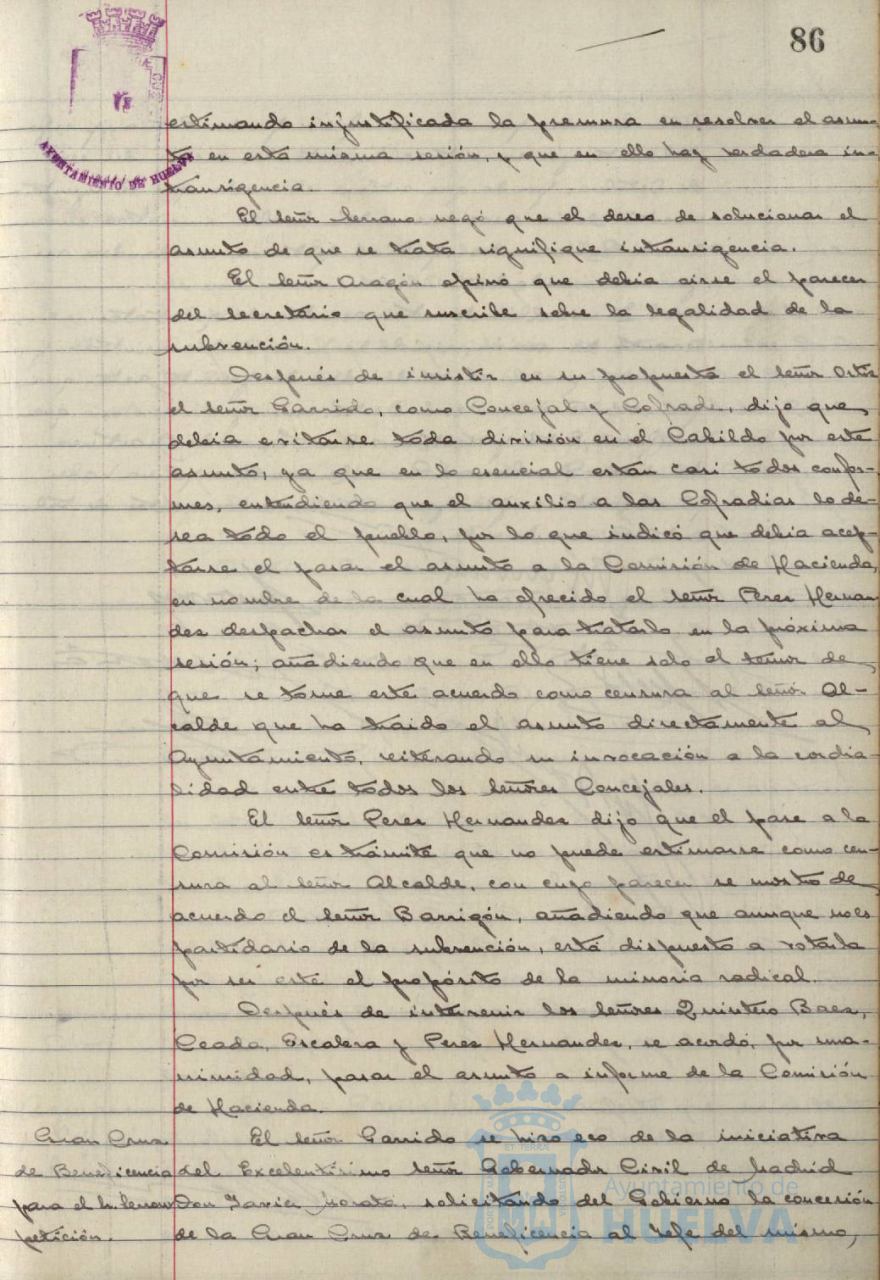 86
AYUNTAMIENTO DE HUELVA
estimando injustificada la premura en resolver el asun-
to en esta misma sesión, y que en ello hay verdadera in-
transigencia.
El señor Serrano negó que el deseo de solucionar el
asunto de que se trata signifique intransigencia.
El señor Aragón opinó que debia oirse el parecer
del secretario que suscribe sobre la legalidad de la
subvención.
Después de insistir en su propuesta el señor Ortiz
el señor Garrido, como Concejal y Cofrade, dijo que
debia evitarse toda división en el Cabildo por este
asunto, ya que en lo esencial están casi todos confor-
mes, entendiendo que el auxilio a las Cofradias lo de-
sea todo el pueblo, por lo que indicó que debia acep-
tarse el pasar el asunto a la Comisión de Hacienda,
en nombre de la cual ha ofrecido el señor Perez Hernan
dez despachar el asunto para tratarlo en la próxima
sesión; añadiendo que en ello tiene solo el temor de
que se tome este acuerdo como censura al señor Al-
calde que ha traido el asunto directamente al
Ayuntamiento, reiterando su invocación a la cordia-
lidad entre todos los señores Concejales.
El señor Perez Hernandez dijo que el pase a la
Comisión es trámite que no puede estimarse como cen-
sura al señor Alcalde, con cuyo parecer se mostró de
acuerdo el señor Barrigón, añadiendo que aunque no es
partidario de la subvención, está dispuesto a votarla
por ser este el propósito de la minoria radical.
Después de intervenir los señores Quintero Baez,
Ceada, Escalera y Perez Hernandez, se acordó, por una-
nimidad, pasar el asunto a informe de la Comisión
de Hacienda.
Gran Cruz
de Beneficencia
para el Sr.
petición.
El señor Garrido se hizo eco de la iniciativa
del Excelentísimo señor Gobernador Civil de Madrid
Don Javier Morata, solicitando del Gobierno la concesión
de la Gran Cruz de Beneficencia al Jefe del mismo,
Ayuntamiento de
HUELVA